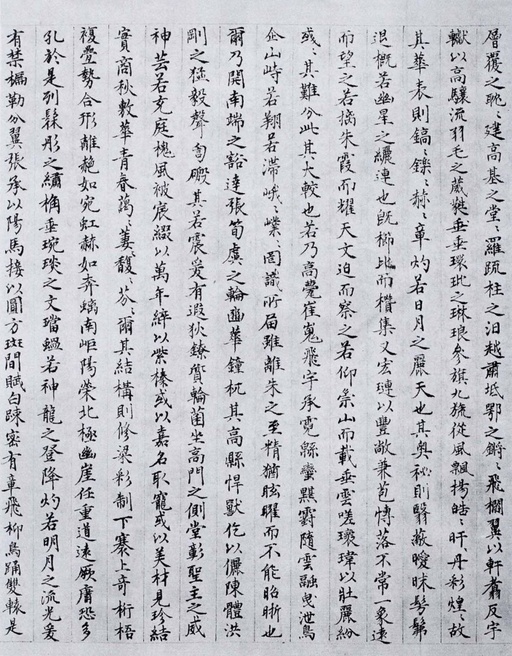 層覆之耽〻建高基之堂〻羅疏柱之汩越肅坻鄂之鏘〻飛櫩翼以軒翥反宇
轍以高驤流羽毛之葳蕤垂垂環玭之琳琅參旗九旒從風飄揚皓〻旰〻丹彩煌〻故
其華表則鎬〻鑠〻赫〻章灼若日月之麗天也其奧祕則翳蔽曖昧髣髴
退概若幽星之纚連也既櫛比而欑集又宏璉以豐敞兼苞博落不常一象遠
而望之若摛朱霞而耀天文迫而察之若仰崇山而載垂雲嗟瓌瑋以壯麗紛
彧〻其難分此其大較也若乃高甍崔嵬飛宇承霓緜蠻黮霸隨雲融曳泄鳥
企山峙若翔若滯峨〻嶫〻罔識所屆雖離朱之至精猶眩曜而不能昭晰也
爾乃開南端之豁達張筍虡之輪豳華鐘杌其高縣悍獸仡以儷陳體洪
剛之猛毅聲訇磤其若震爰有遐狄鐐質輪菌坐高門之側堂彰聖主之威
神芸若充庭槐風被宸綴以萬年綷以紫榛或以嘉名取寵或以美材見珍結
實商秋敷華青春藹〻萋〻馥〻芬〻爾其結構則修梁彩制下褰上奇桁梧
複疊勢合形離赩如宛虹赫如奔螭南岠陽榮北極幽崖任重道遠厥庸恐多
孔於是列髹彤之繡桷垂琬琰之文璫蝹若神龍之登降灼若明月之流光爰
有禁楄勒分翼張承以陽馬接以圓方斑間賦白疎密有章飛枊鳥踊雙轅是